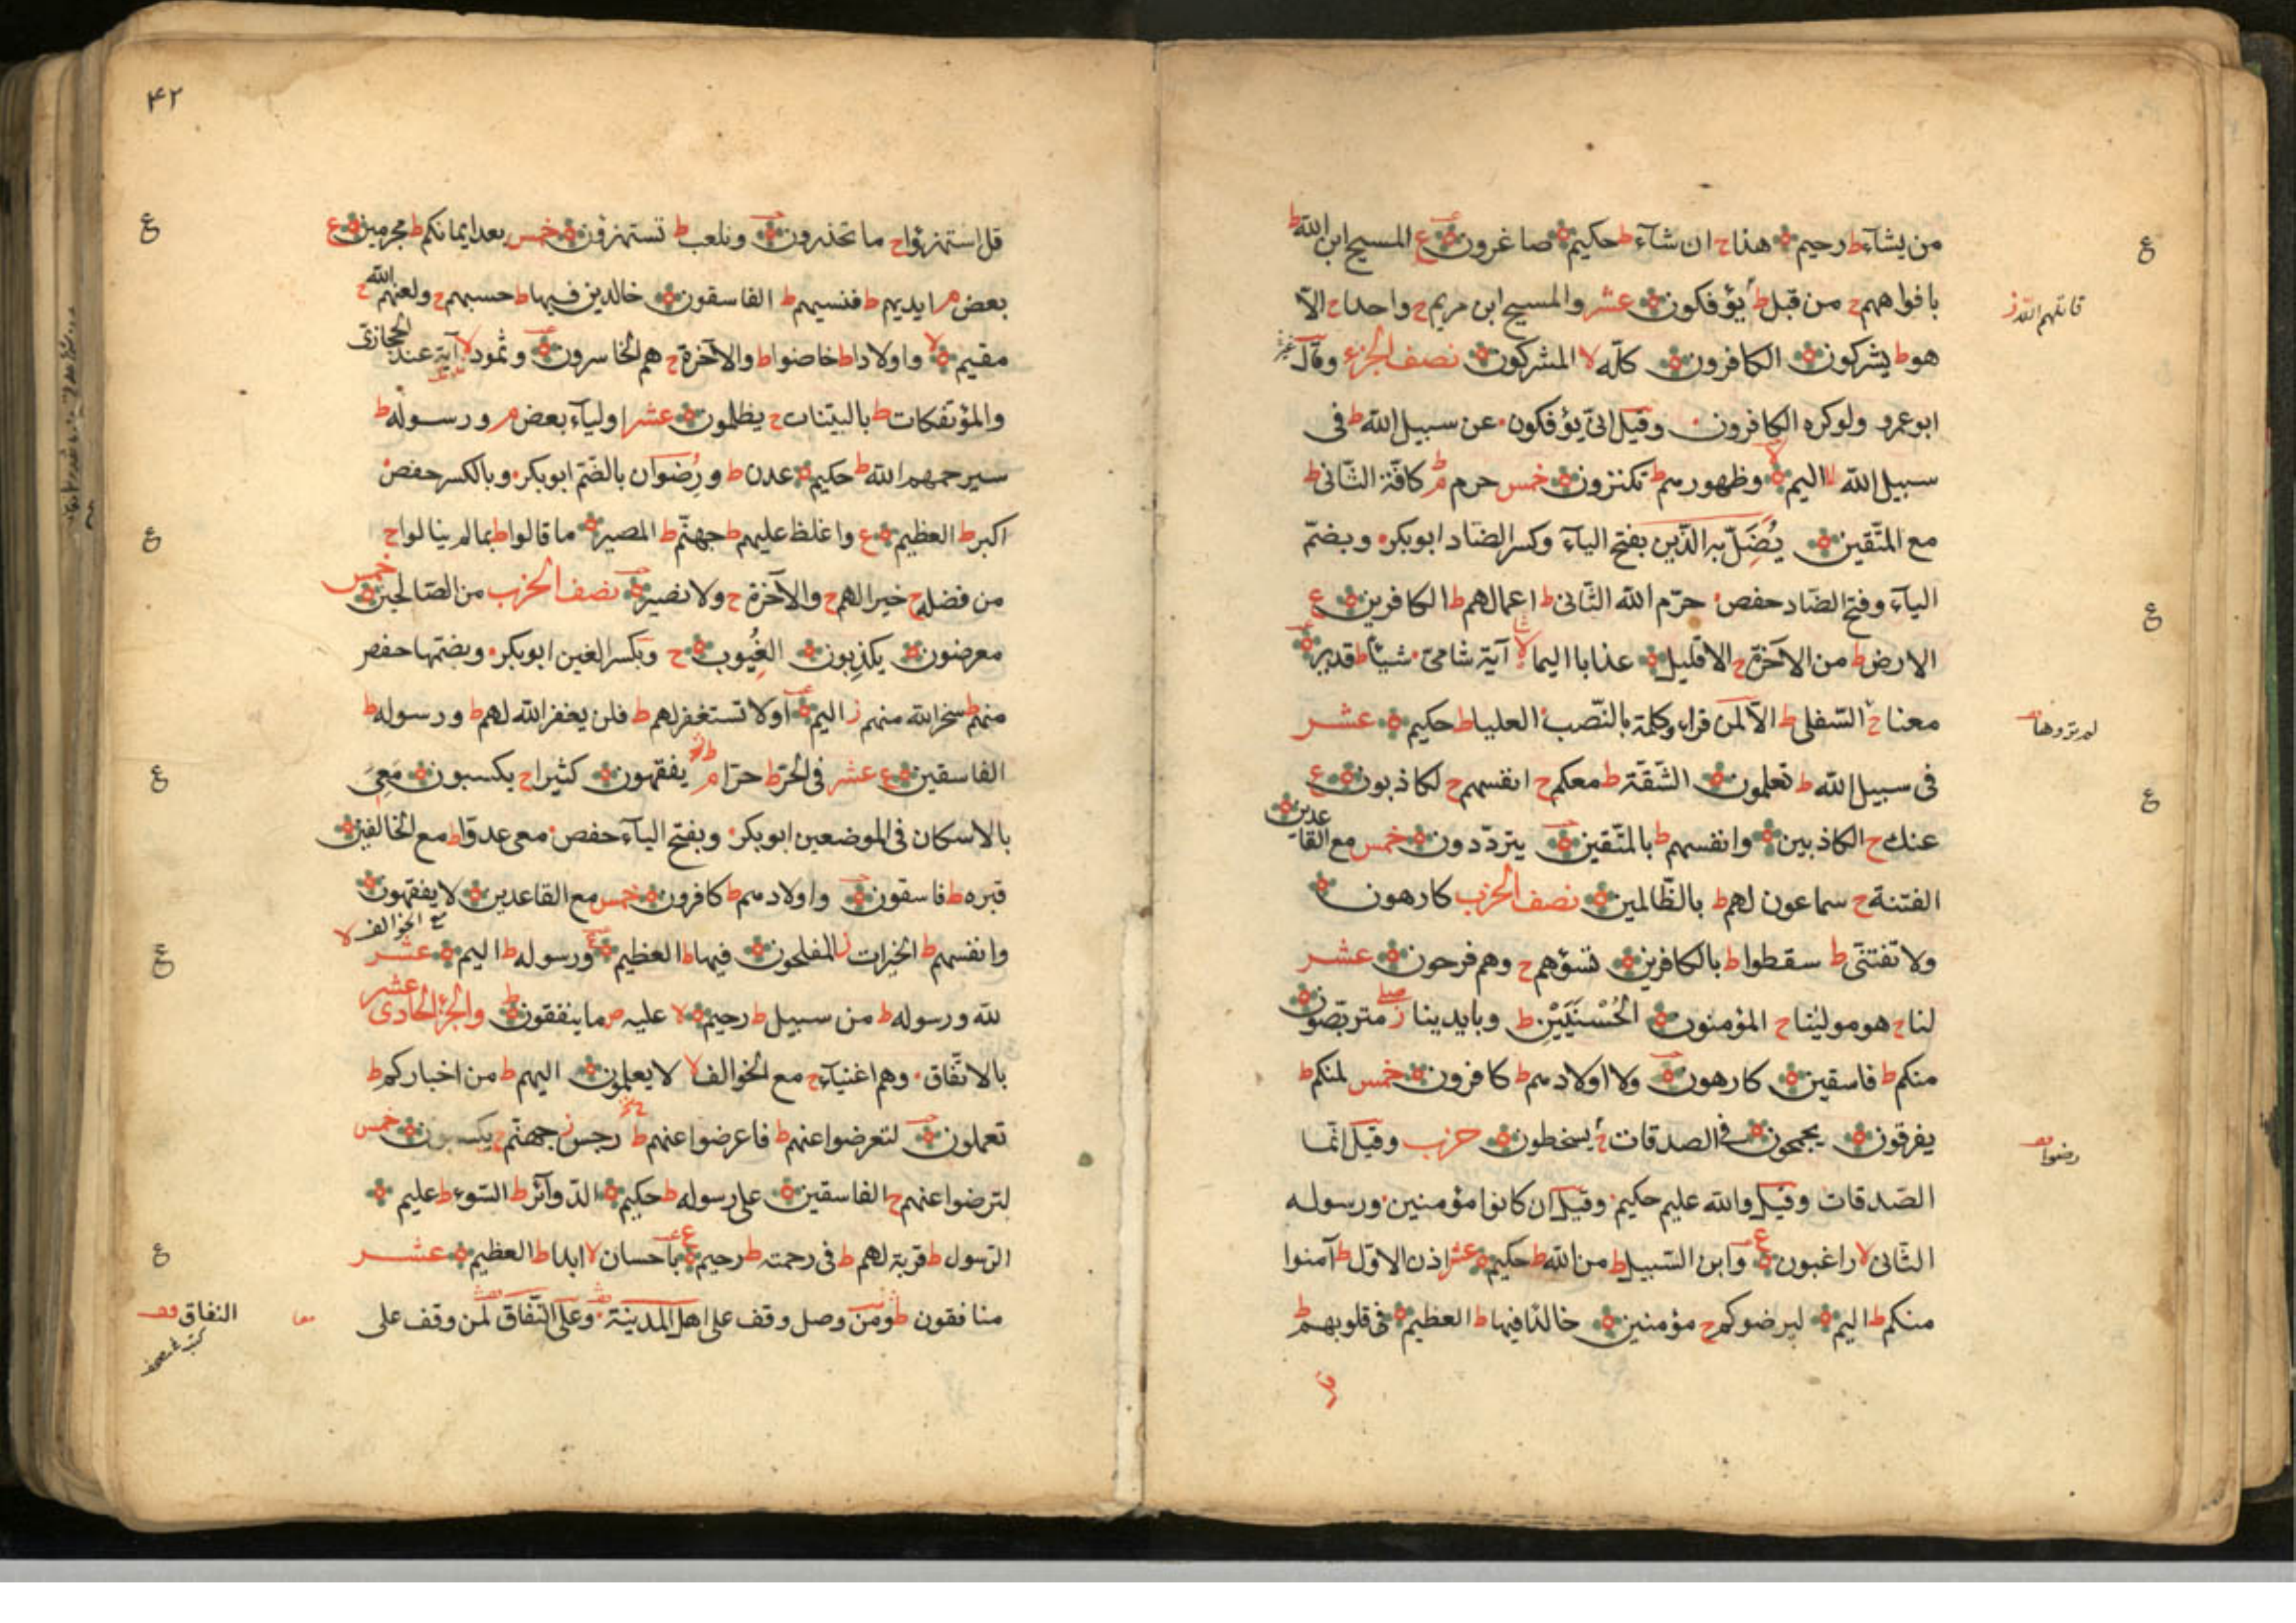 من يشآء ط رحيم هذا ح ان شآء ط حكيم صاغرون ع المسيح ابن الله ط
بافواههم ح من قبل ط يؤفكون عشر والمسيح ابن مريم ح واحدا ح الا
قاتلهم الله ز
هو ط يشركون الكافرون كله لا المشركون نصف الجزء وقال
ابو عمرو ولو كره الكافرون وقيل انى يؤفكون عن سبيل الله ط فى
سبيل الله لا اليم وظهورهم ط تكنزون خمس حرم م كافة الثانى ط
مع المتقين يُضَلّ به الذين بفتح اليآء وكسر الضاد ابوبكر وبضم
اليآء وفتح الضاد حفص حرّم الله الثانى ط اعمالهم ط الكافرين ع
الارض ط من الآخرة ح الا قليل عذابا اليما لا آية شامى شيئا ط قدير
معنا ح السفلى ط الا لمن قراء وكلمة بالنصب العليا ط حكيم عشر
لم تروها
فى سبيل الله ط تعلمون الشقة ط معكم ح انفسهم ح لكاذبون ع
عنك ح الكاذبين وانفسهم ط بالمتقين يترددون خمس مع القاعدين
الفتنة ح سماعون لهم ط بالظالمين نصف الحزب كارهون
ولا تفتنى ط سقطوا ط بالكافرين تسؤهم ح وهم فرحون عشر
لنا ح هو مولينا ح المؤمنون الحُسْنَيَيْنِ ط وبايدينا ز متربصون
منكم ط فاسقين كارهون ولا اولادهم ط كافرون خمس لمنكم ط
يفرقون يجمحون فى الصدقات ح يسخطون حزب وقيل انما
الصدقات وقيل والله عليم حكيم وقيل ان كانوا مؤمنين ورسوله
الثانى لا راغبون ع وابن السبيل ط من الله ط حكيم عشر اذن الاول ط آمنوا
منكم ط اليم ليرضوكم ح مؤمنين خالدا فيها ط العظيم فى قلوبهم ط
٤٢
قل استهزؤا ح ما تحذرون ونلعب ط تستهزؤن خمس بعد ايمانكم ط مجرمين ع
بعض م ايديهم ط فنسيهم ط الفاسقون خالدين فيها ط حسبهم ح ولعنهم الله ح
مقيم لا واولادا ط خاضوا ط والآخرة ح هم الخاسرون وثمود لا آية عند الحجازى
والمؤتفكات ط بالبينات ح يظلمون عشر اوليآء بعض م ورسوله ط
سيرحمهم الله ط حكيم عدن ط ورُضوان بالضم ابوبكر وبالكسر حفص
اكبر ط العظيم ع واغلظ عليهم ط جهنم ط المصير ما قالوا ط بما لم ينالوا ح
من فضله ح خيرا لهم ح والآخرة ح ولا نصير نصف الحزب من الصالحين خمس
معرضون يكذبون الغيوب ح وبكسر الغين ابوبكر وبضمها حفص
منهم ط سخر الله منهم ز اليم أولا تستغفر لهم ط فلن يغفر الله لهم ط ورسوله ط
الفاسقين ع عشر فى الحر ط حرا م يفقهون كثيرا ح يكسبون مَعِىَ
بالاسكان فى الموضعين ابوبكر وبفتح اليآء حفص معى عدوا ط مع الخالفين
قبره ط فاسقون واولادهم ط كافرون خمس مع القاعدين لا يفقهون
مع الخوالف لا
وانفسهم ط الخيرات ز المفلحون فيها ط العظيم ورسوله ط اليم عشر
لله ورسوله ط من سبيل ط رحيم لا عليه ص ما ينفقون ط والجزء الحادى عشر
بالاتفاق وهم اغنيآء ح مع الخوالف لا لا يعلمون اليهم ط من اخباركم ط
تعملون لتعرضوا عنهم ط فاعرضوا عنهم ط رجس ز جهنم ح يكسبون خمس
لترضوا عنهم ح الفاسقين على رسوله ط حكيم الدوآئر ط السوء ط عليم
الرسول ط قربة لهم ط فى رحمته ط رحيم ع باحسان لا ابدا ط العظيم عشر
منافقون ط ومن وصل وقف على اهل المدينة وعلى النفاق لمن وقف على
النفاق